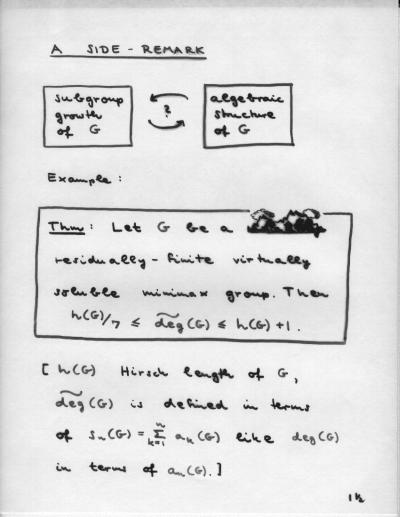 A SIDE-REMARK
subgroup growth of G
?
algebraic structure of G
Example:
Thm: Let G be a
residually-finite virtually
soluble minimax group. Then
h(G)/7 ≤ d̃eg(G) ≤ h(G)+1.
[ h(G) Hirsch length of G,
d̃eg(G) is defined in terms
of sₙ(G) = Σₖ₌₁ⁿ aₖ(G) like deg(G)
in terms of aₙ(G).]
1½